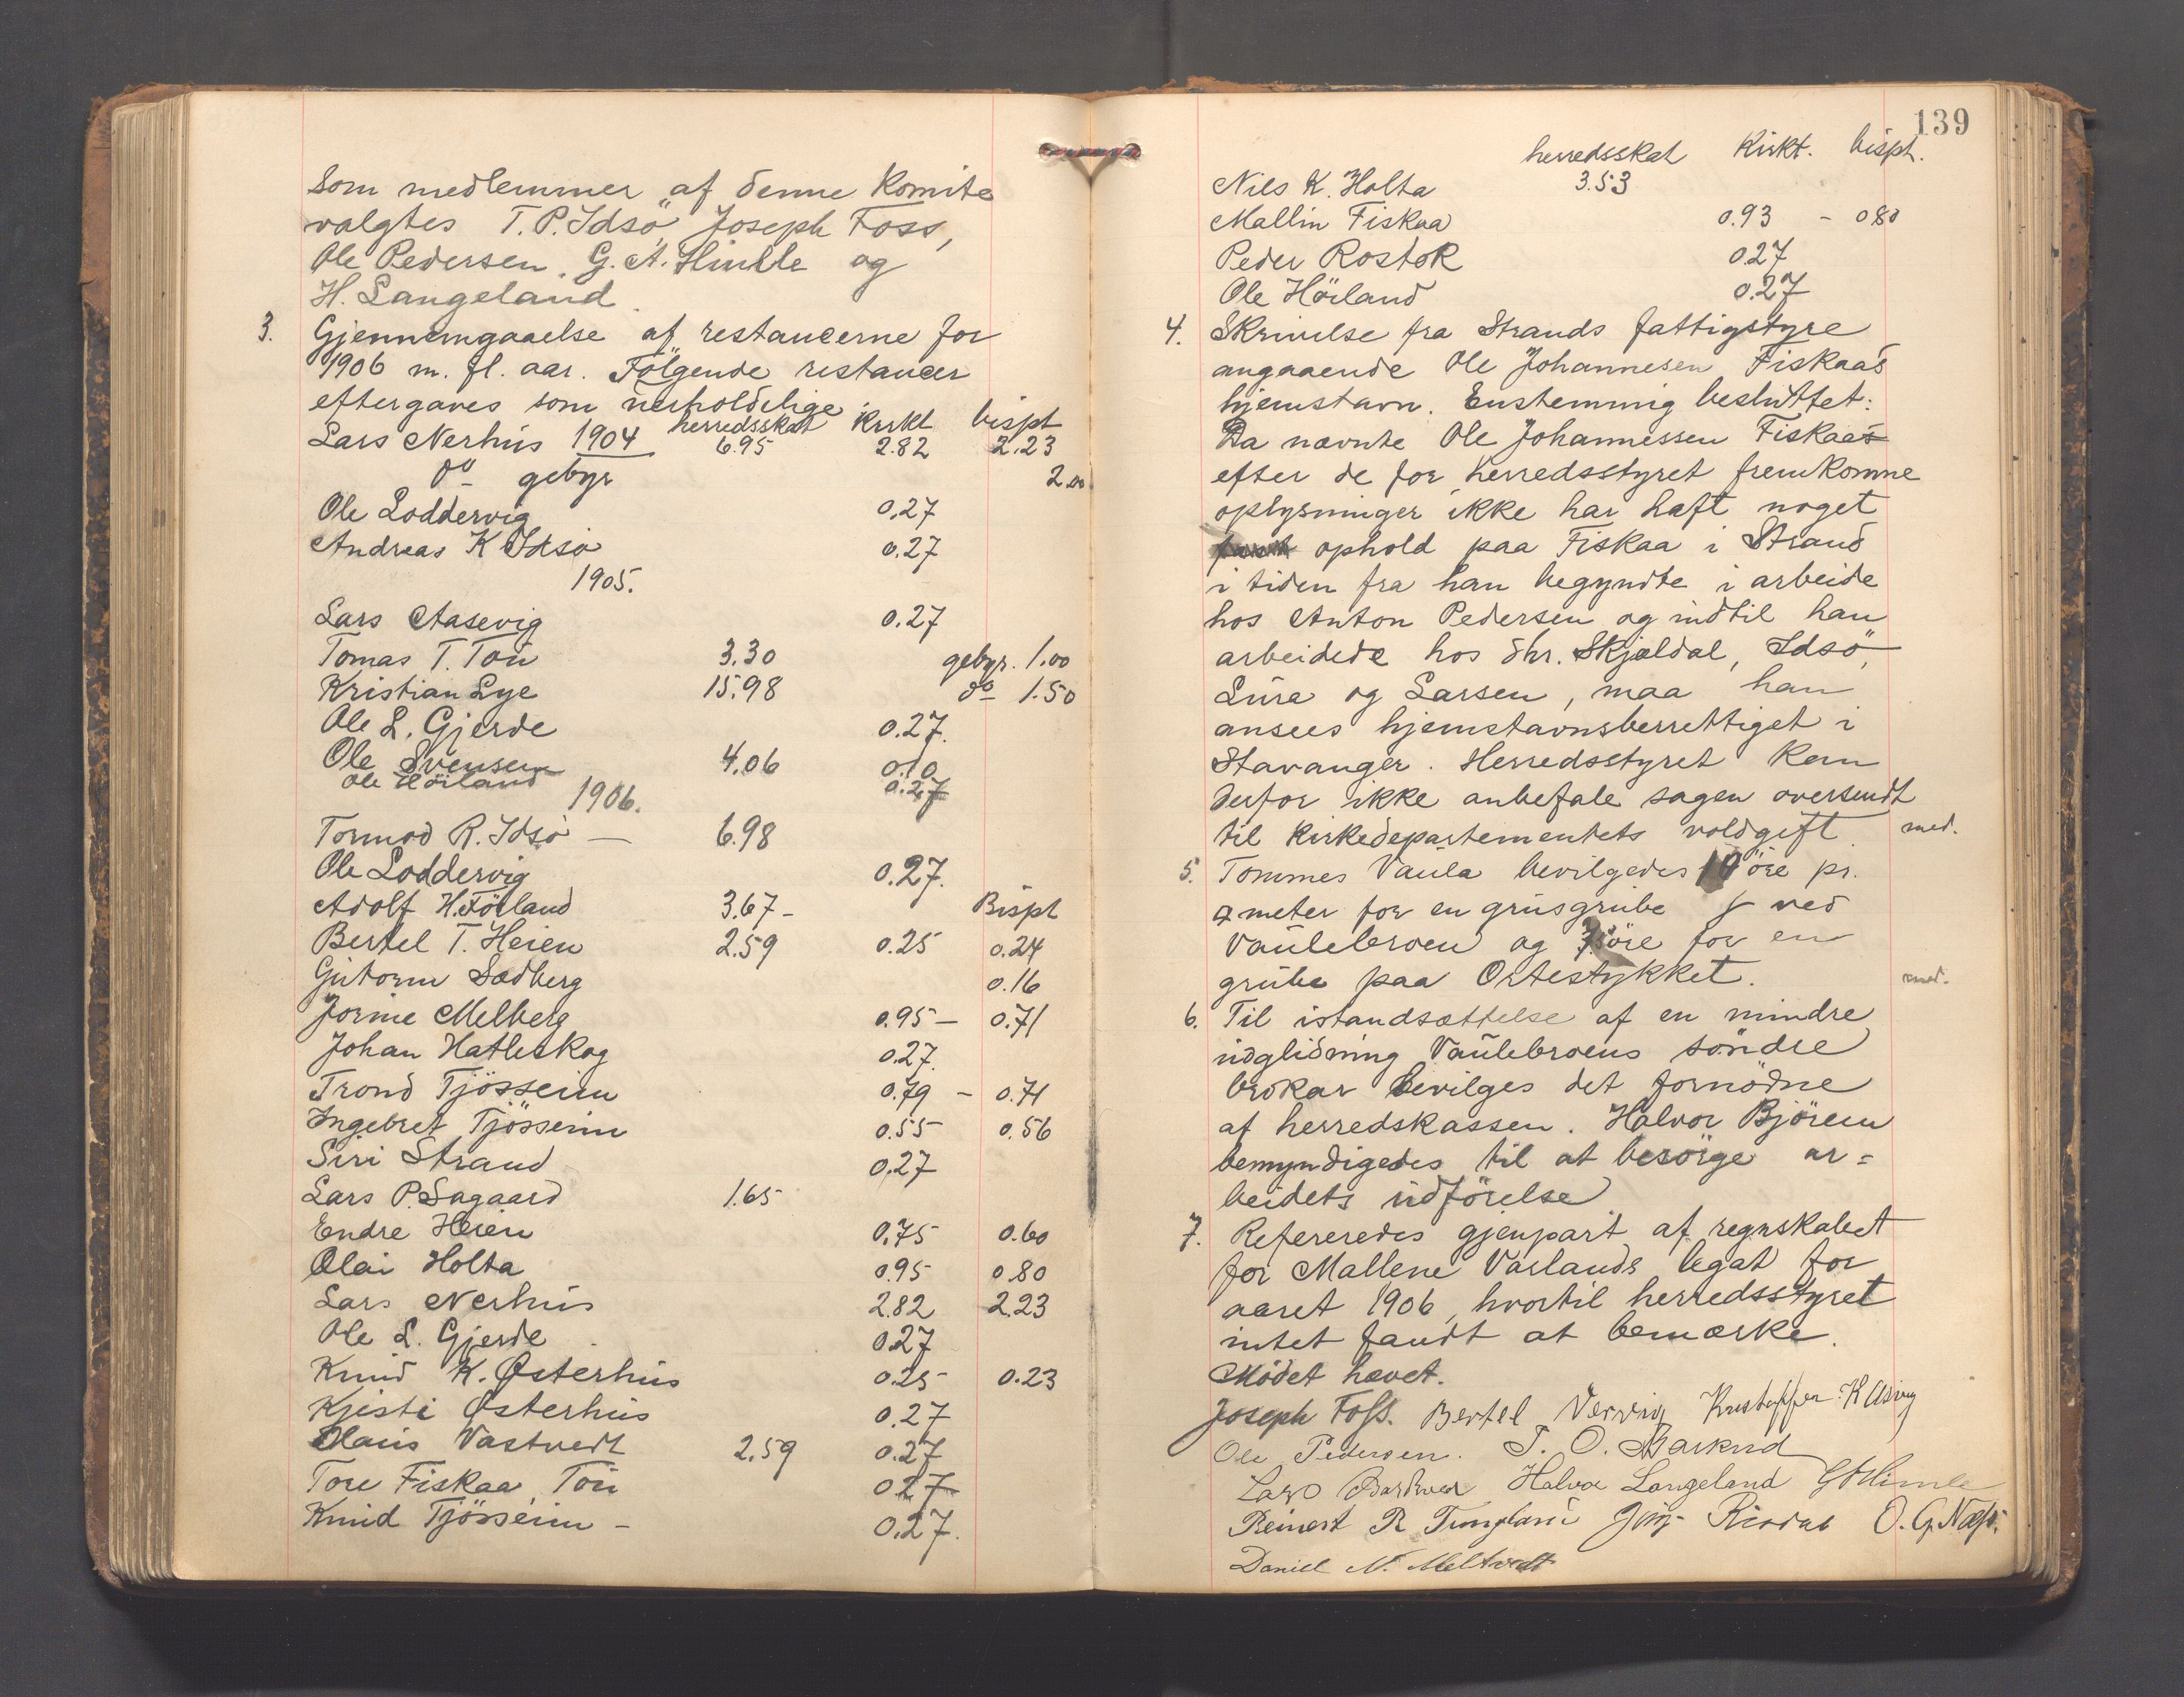 Som medlemmer af denne Komite
valgtes T. P. Idsö Joseph Foss,
Ole Pedersen, G. A. Himle og
H. Langeland.
3. Gjennemgaaelse af restancerne for
1906 m. fl. aar. Fölgende restancer
eftergaves som uerholdelige.
herredsskat Kirkt bispt
Lars Nerhus 1904 6.95 2.82 2.23
do gebyr 2.00
Ole Loddervig 0.27
Andreas K Idsö 0.27
1905.
Lars Aasevig 0.27
Tomas T. Tou 3.30 gebyr. 1.00
Kristian Lye 15.98 do 1.50
Ole L. Gjerde 0.27.
Ole Svensen 4.06 0.10
Ole Höiland 0.27
1906.
Tormod R. Idsö — 6.98
Ole Loddervig 0.27.
Adolf H. Förland 3.67- Bispt
Bertel T. Heien 2.59 0.25 0.24
Gutorm Sedberg 0.16
Jorine Melberg 0.95 — 0.71
Johan Hatleskog 0.27.
Trond Tjösseim 0.79 - 0.71
Ingebret Tjösseim 0.55 0.56
Siri Strand 0.27
Lars P. Sagaard 1.65
Endre Heien 0.75 0.60
Olai Holta 0.95 0.80
Lars Nerhus 2.82 2.23
Ole L. Gjerde 0.27
Knud K. Østerhus 0.25 0.23
Kjesti Østerhus 0.27
Olaus Vastvedt 2.59 0.27
Tore Fiskaa, Tou 0.27
Knud Tjösseim - 0.27.
139
herredsskat Kirkt. bispt.
Nils K. Holta 3.53
Mallin Fiskaa 0.93 - 0.80
Peder Rostøk 0.27
Ole Höiland 0.27
4. Skrivelse fra Strands fattigstyre
angaaende Ole Johannesen Fiskaas
hjemstavn. Enstemmig besluttet:
Da nævnte Ole Johannessen Fiskaas
efter de for herredsstyret fremkomne
oplysninger ikke har haft noget
ophold paa Fiskaa i Strand
i tiden fra han begyndte i arbeide
hos Anton Pedersen og indtil han
arbeidede hos dhr. Skjældal, Idsö,
Lura og Larsen, maa han
ansees hjemstavnsberrettiget i
Stavanger. Herredsstyret kan
derfor ikke anbefale sagen oversendt
til Kirkedepartementets voldgift. med.
5. Tommes Vaula bevilgedes 10 öre pr.
meter for en grusgrube ved
Vaulebroen og öre for en
grube paa Ortestykket. med.
6. Til istandsættelse af en mindre
udglidning Vaulebroens söndre
brokar bevilges det fornödne
af herredskassen. Halvor Björem
bemyndigedes til at besörge ar=
beidets udförelse
7. Refereredes gjenpart af regnskabet
for Mallene Varlands legat for
aaret 1906, hvortil herredsstyret
intet fandt at bemærke.
Mödet hævet.
Joseph Foss. Bertel Vervig Kristoffer K Asvig
Ole Pedersen. T. O. Barkved
Lars Barkved Halvor Langeland G A Himle
Reinert R Tungland O. G. Næss.
Daniel N. Meltvedt